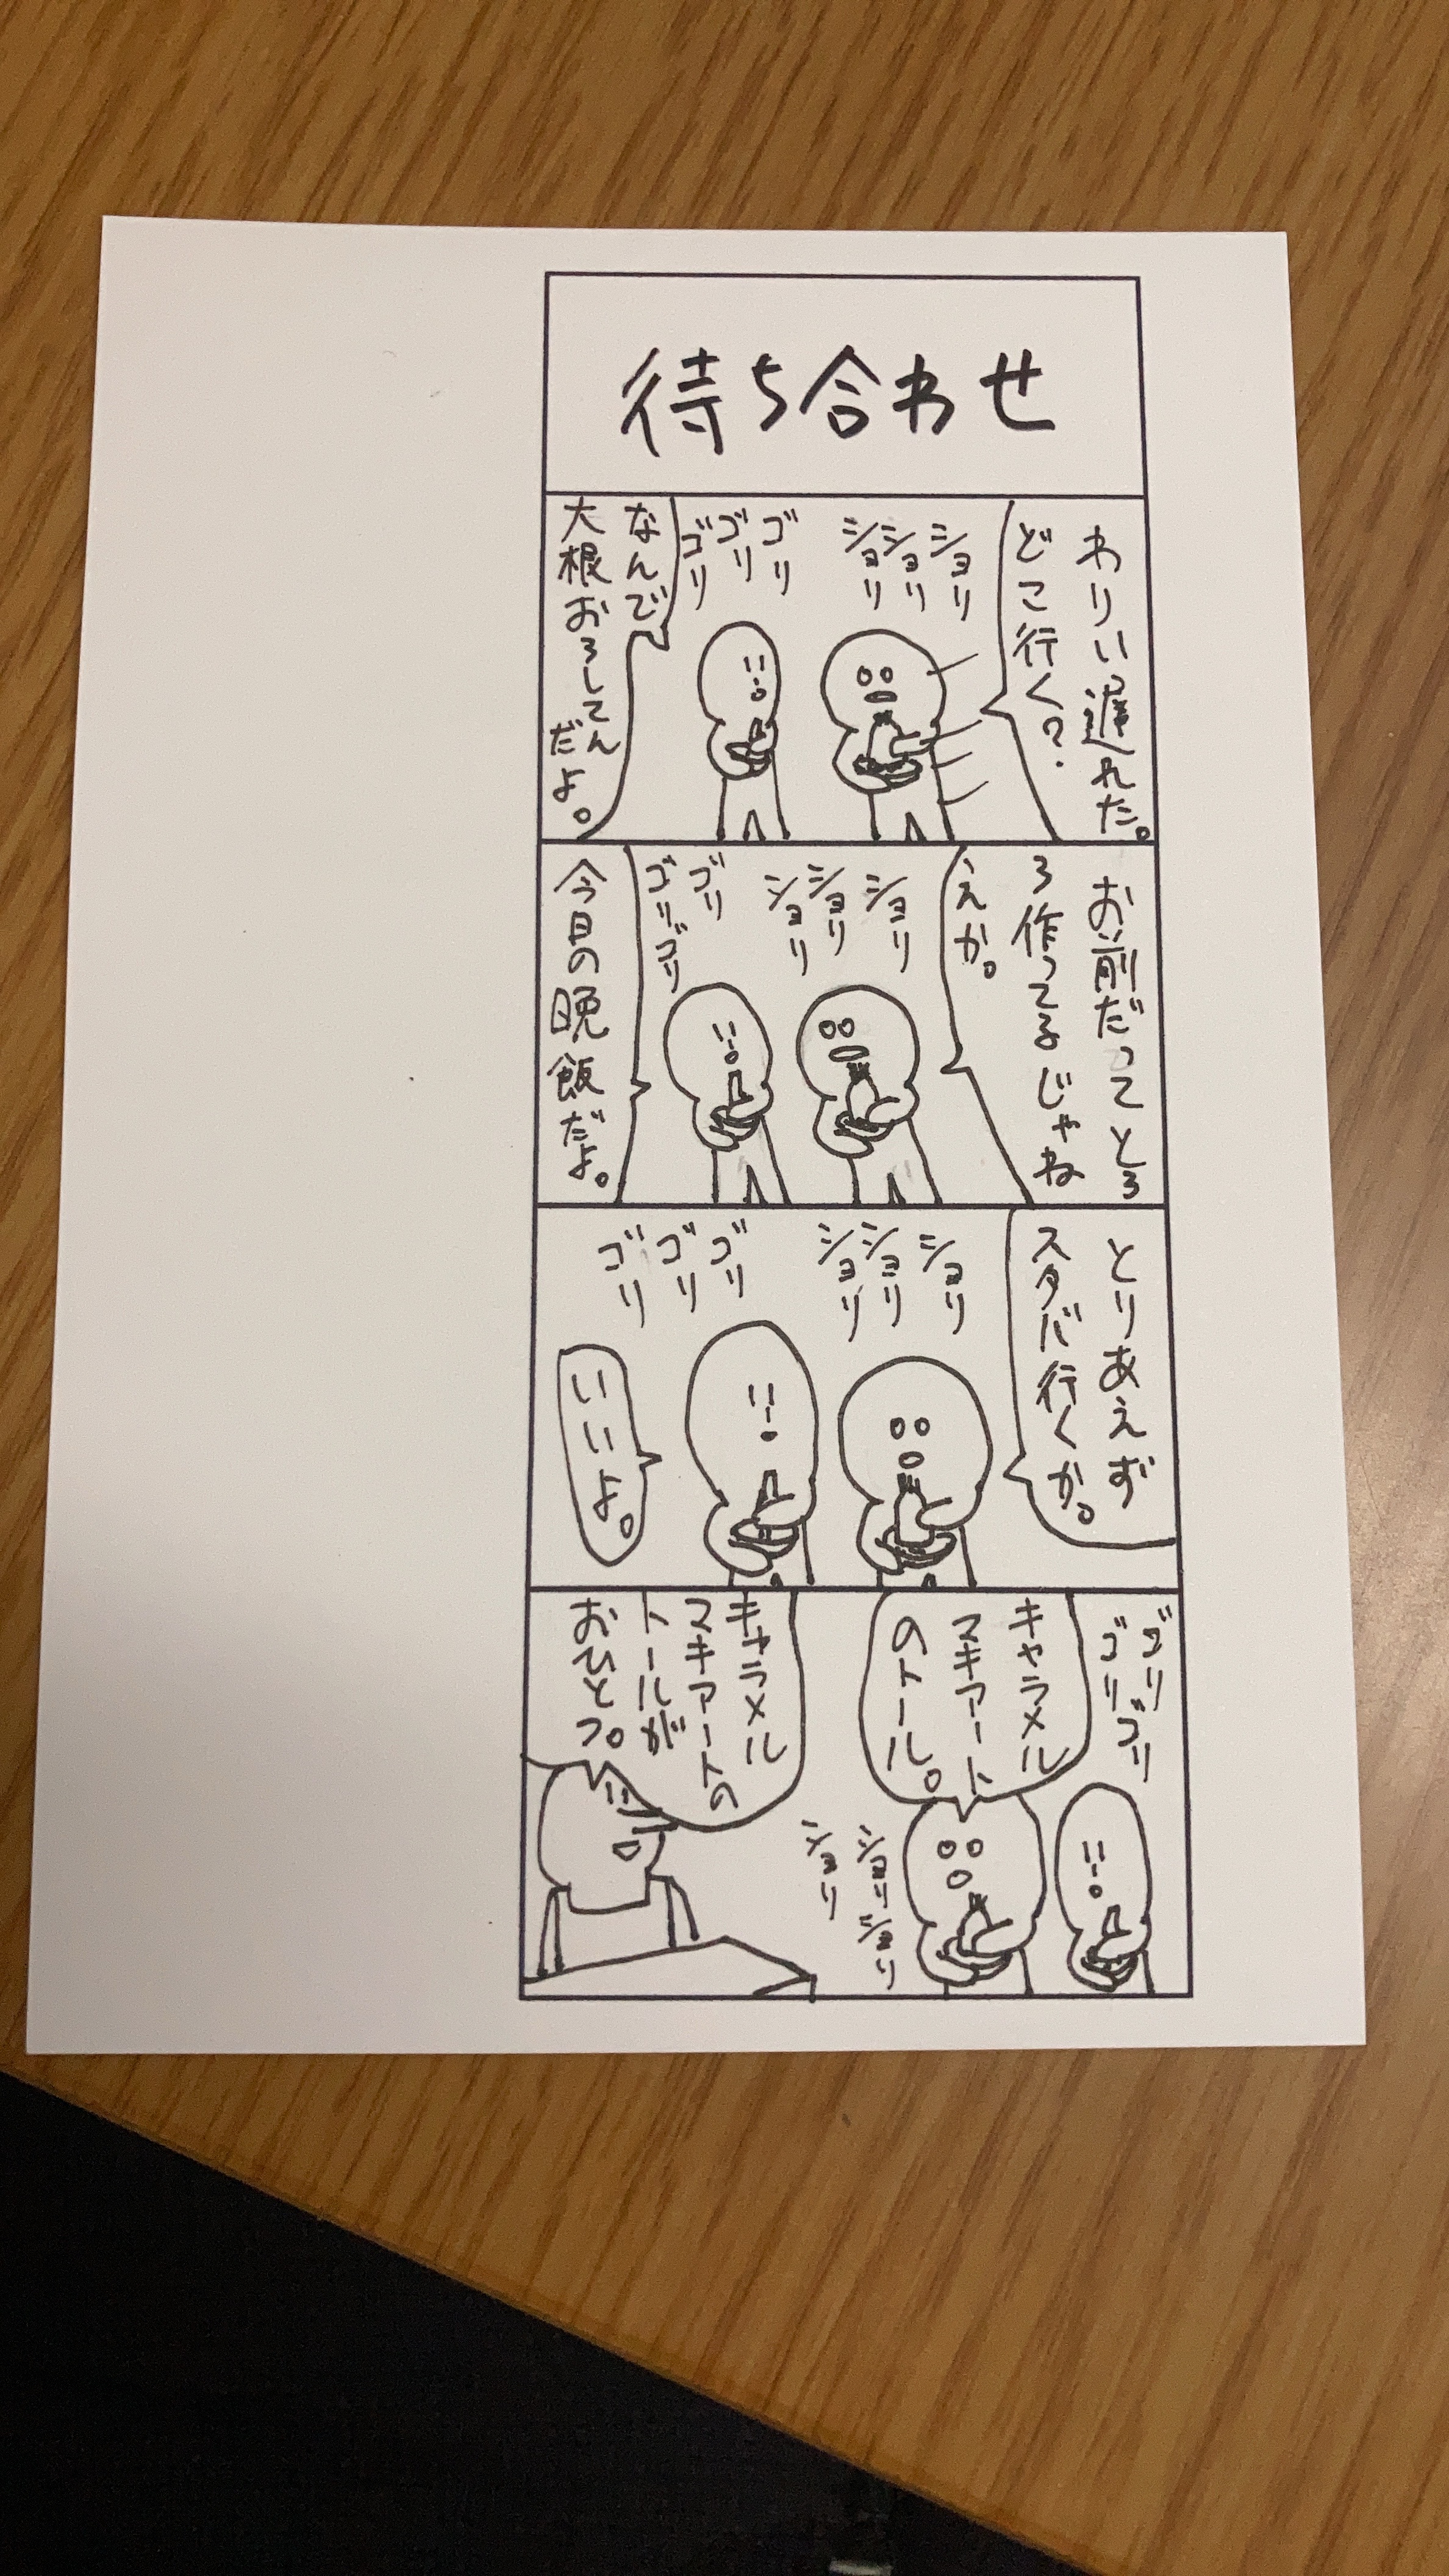 待ち合わせ
わりい遅れた。
どこ行く?
ショリ
ショリ
ショリ
ゴリ
ゴリ
ゴリ
なんで
大根おろしてん
だよ。
お前だってとろ
ろ作ってるじゃね
えか。
ショリ
ショリ
ショリ
ゴリ
ゴリゴリ
今日の晩飯だよ。
とりあえず
スタバ行くか。
ショリ
ショリ
ショリ
ゴリ
ゴリ
ゴリ
いいよ。
ゴリ
ゴリゴリ
キャラメル
マキアート
のトール。
ショリショリ
ショリ
キャラメル
マキアートの
トールが
おひとつ。